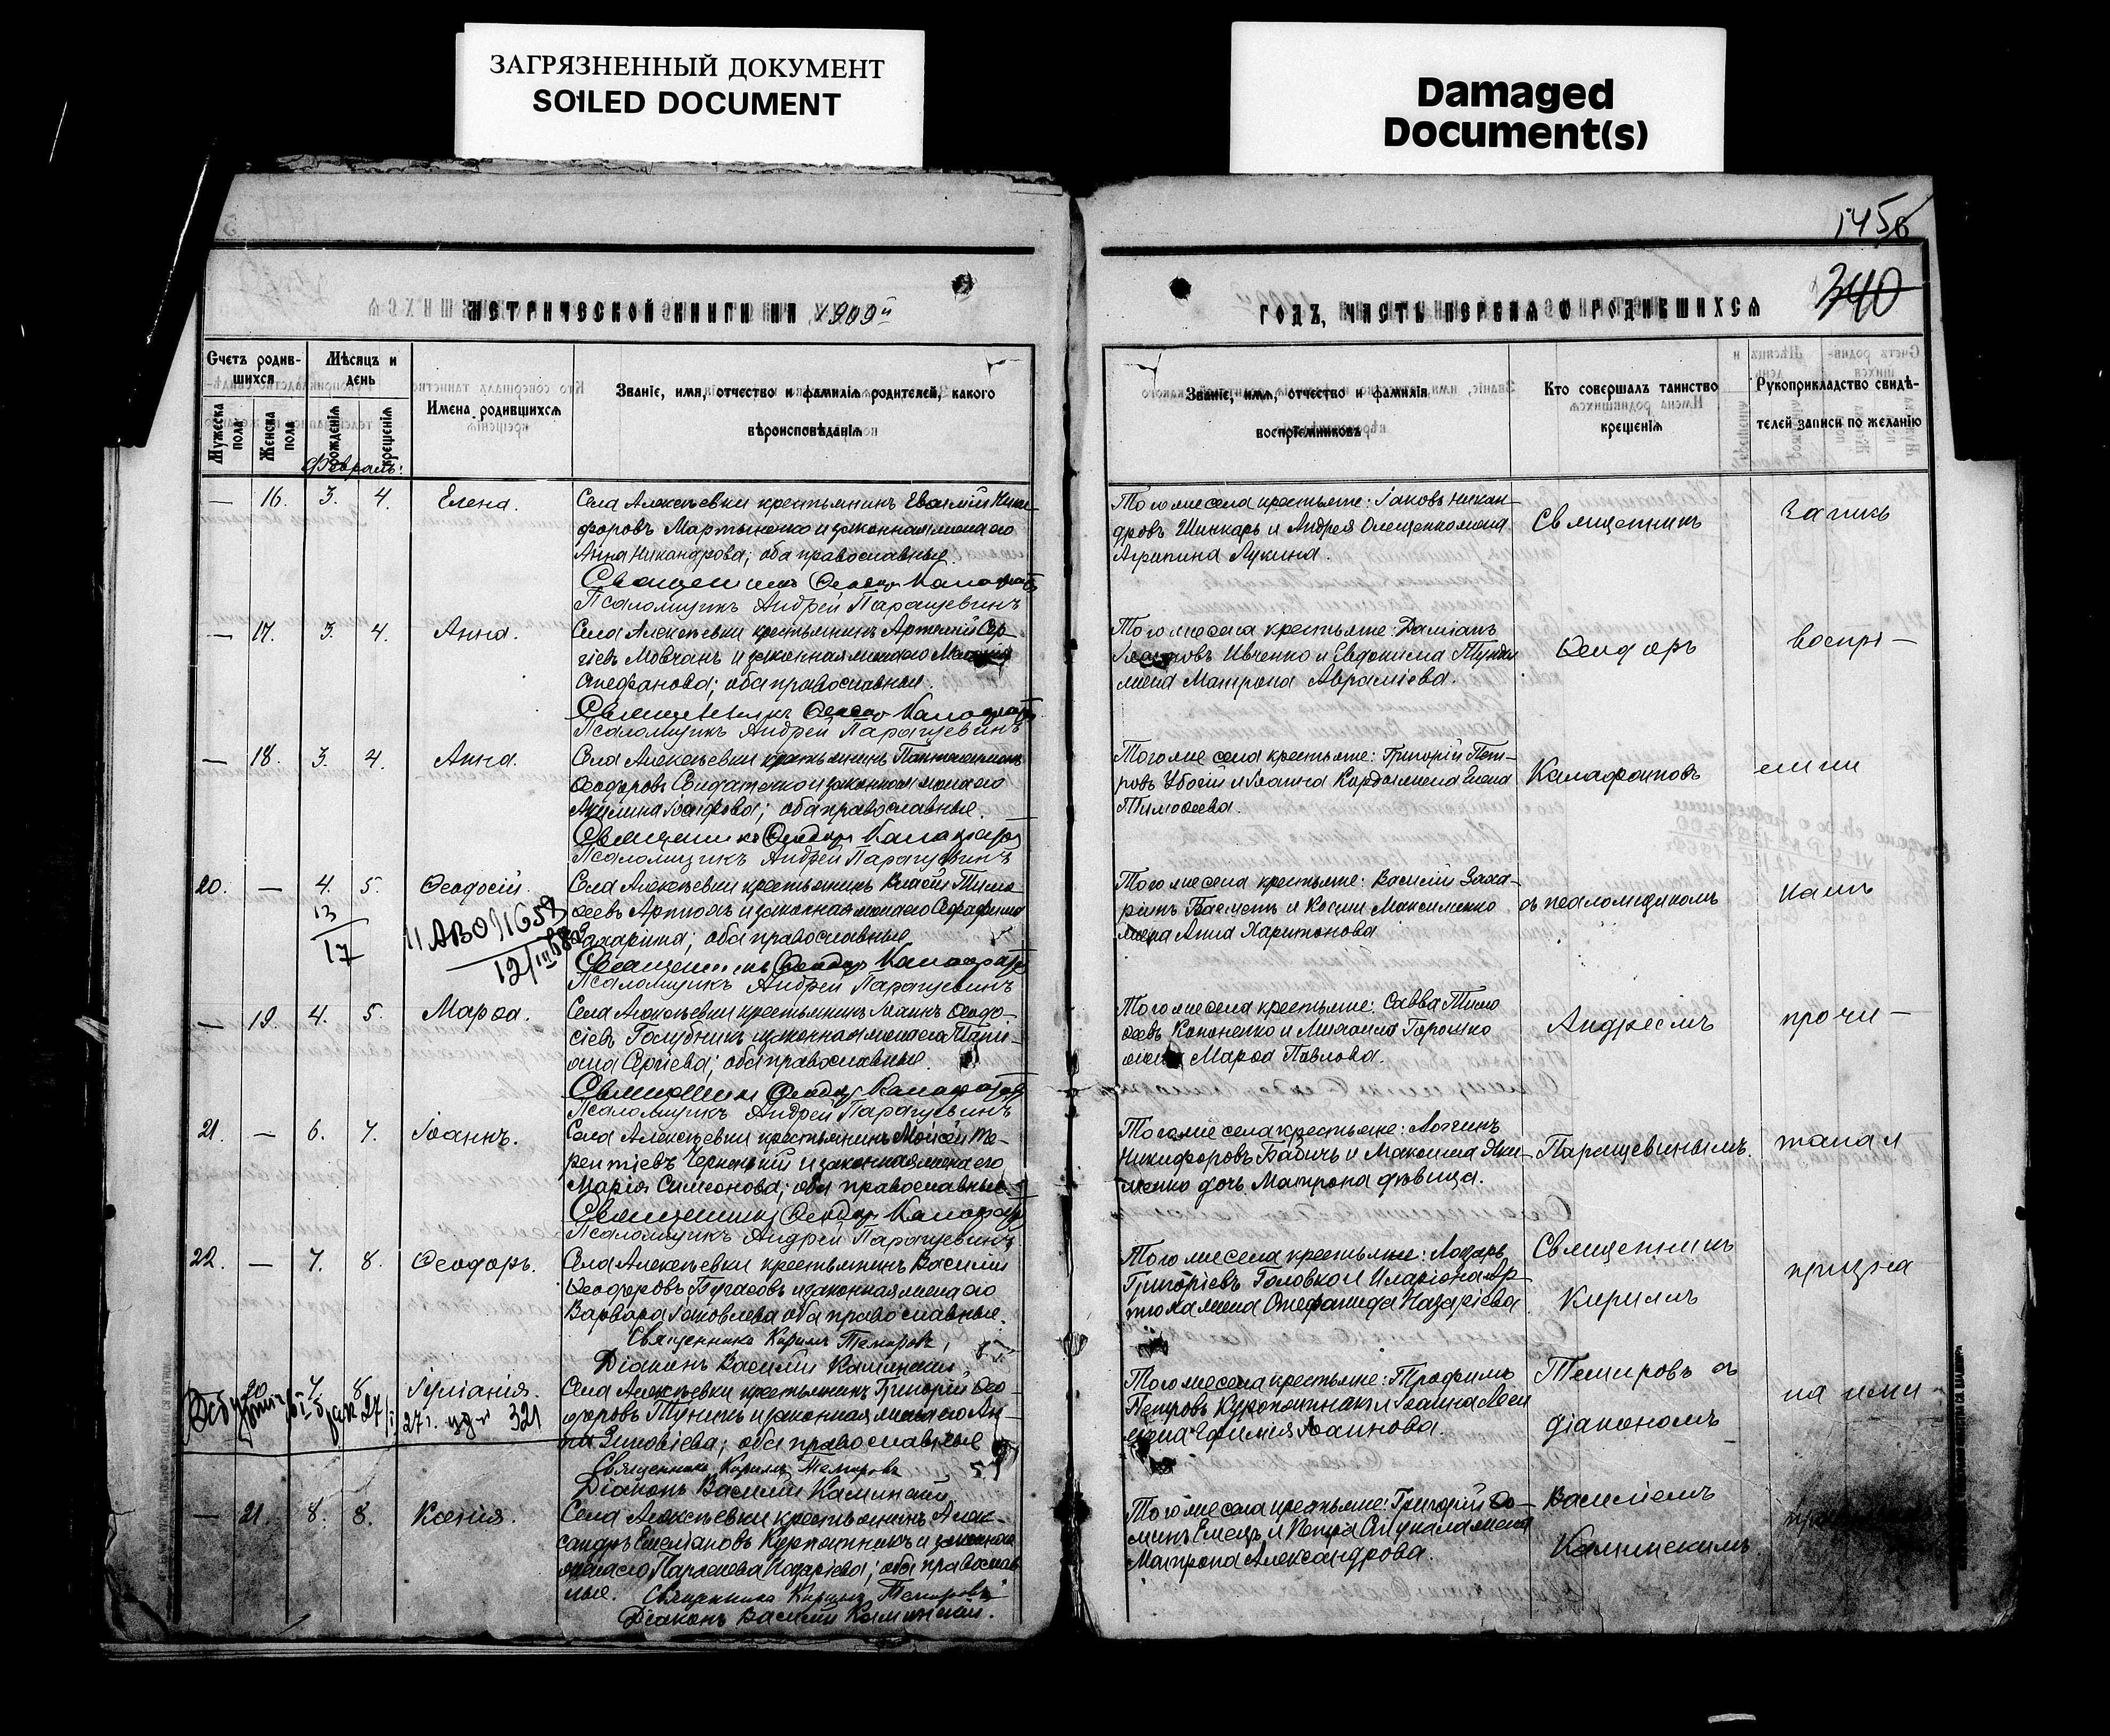 ЗАГРЯЗНЕННЫЙ ДОКУМЕНТ
SOILED DOCUMENT
Damaged
Document(s)
1456
340
МЕТРИЧЕСКОЙ КНИГИ НА 1909й
ГОДЪ, ЧАСТЬ ПЕРВАЯ О РОДИВШИХСЯ
Счетъ родив-
шихся
Мужеска пола
Женска пола
Мѣсяцъ и
день
рожденія
крещенія
Имена родившихся
Званіе, имя, отчество и фамилія родителей, какого
вѣроисповѣданія
Званіе, имя, отчество и фамилія
воспріемниковъ
Кто совершалъ таинство
крещенія
Рукоприкладство свидѣ-
телей записи по желанію
Февраль:
— 16. 3. 4. Елена.
Села Алексѣевки крестьянинъ Евѳимій Ники-
форовъ Мартыненко и законная жена его
Анна Никандрова; оба православные.
Священникъ Ѳеодоръ Калафатовъ
Псаломщикъ Андрей Паращевинъ
Того же села крестьяне: Іаковъ Никан-
дровъ Шинкарь и Андрея Олещенко жена
Агрипина Лукина.
Священникъ
Запись
— 17. 3. 4. Анна.
Села Алексѣевки крестьянинъ Артемій Сер-
гіевъ Мовчанъ и законная жена его
Стефанова; оба православные.
Священникъ Ѳеодоръ Калафатовъ
Псаломщикъ Андрей Паращевинъ
Того же села крестьяне: Даміанъ
Ивченко и Евдокима
жена Матрона Авраміева.
Ѳеодоръ
воспрі-
— 18. 3. 4. Анна.
Села Алексѣевки крестьянинъ Пантелеимонъ
Ѳеодоровъ Солдатенко и законная жена его
Акилина Іосифова; оба православные.
Священникъ Ѳеодоръ Калафатовъ
Псаломщикъ Андрей Паращевинъ
Того же села крестьяне: Григорій Пет-
ровъ Убогій и Іоанна жена Елена
Тимоѳеева.
Калафатовъ
емни
20. — 4. 5. Ѳеодосій.
Села Алексѣевки крестьянинъ Власій Тимо-
ѳеевъ Артюхъ и законная жена его Серафима
Захаріина; оба православные
Священникъ Ѳеодоръ Калафатовъ
Псаломщикъ Андрей Паращевинъ
13
17
II АВ 0911659
12/III 68
Того же села крестьяне: Василій Заха-
ріинъ и Косьмы Максименко
жена Анна Харитонова
съ псаломщикомъ
камъ
— 19. 4. 5. Марѳа.
Села Алексѣевки крестьянинъ Іоаннъ Ѳеодо-
сіевъ Голубникъ и законная жена его Тати-
ана Сергіева; оба православные.
Священникъ Ѳеодоръ Калафатовъ
Псаломщикъ Андрей Паращевинъ
Того же села крестьяне: Савва Тимо-
ѳеевъ Кононенко и Михаила Горошко
жена Марѳа Павлова.
Андреемъ
прочи-
21. — 6. 7. Іоаннъ.
Села Алексѣевки крестьянинъ Моисей Те-
рентіевъ и законная жена его
Марія Симеонова; оба православные.
Священникъ Ѳеодоръ Калафатовъ
Псаломщикъ Андрей Паращевинъ
Того же села крестьяне: Логгинъ
Никифоровъ Бабичъ и Максима Яки-
менко дочь Матрона дѣвица.
Паращевинымъ.
тана и
22. — 7. 8. Ѳеодоръ.
Села Алексѣевки крестьянинъ Василій
Ѳеодоровъ и законная жена его
Варвара Іаковлева оба православные.
Священникъ Кириллъ Темировъ,
Діаконъ Василій Каминскій
Того же села крестьяне: Лазарь
Григоріевъ Головко и Иларіона Ар-
тюха жена Стефанида Назаріева
Священникъ
Кириллъ
призна
20. 7. 8. Іуліанія.
27 г. 321
Села Алексѣевки крестьянинъ Григорій Ѳео-
доровъ и законная жена его Ан-
на Зиновіева; оба православные
Священникъ Кириллъ Темировъ
Діаконъ Василій Каминскій
Того же села крестьяне: Трофимъ
Петровъ и Іоанна
жена Ефимія Іоаннова.
Темировъ съ
діакономъ
на ими
— 21. 8. 8. Ксенія.
Села Алексѣевки крестьянинъ Алек-
сандръ Емеліановъ и законная
жена его Параскева Назаріева; оба православ-
ные. Священникъ Кириллъ Темировъ
Діаконъ Василій Каминскій.
Того же села крестьяне: Григорій Ѳо-
минъ и Петра жена
Матрона Александрова.
Василіемъ
Каминскимъ